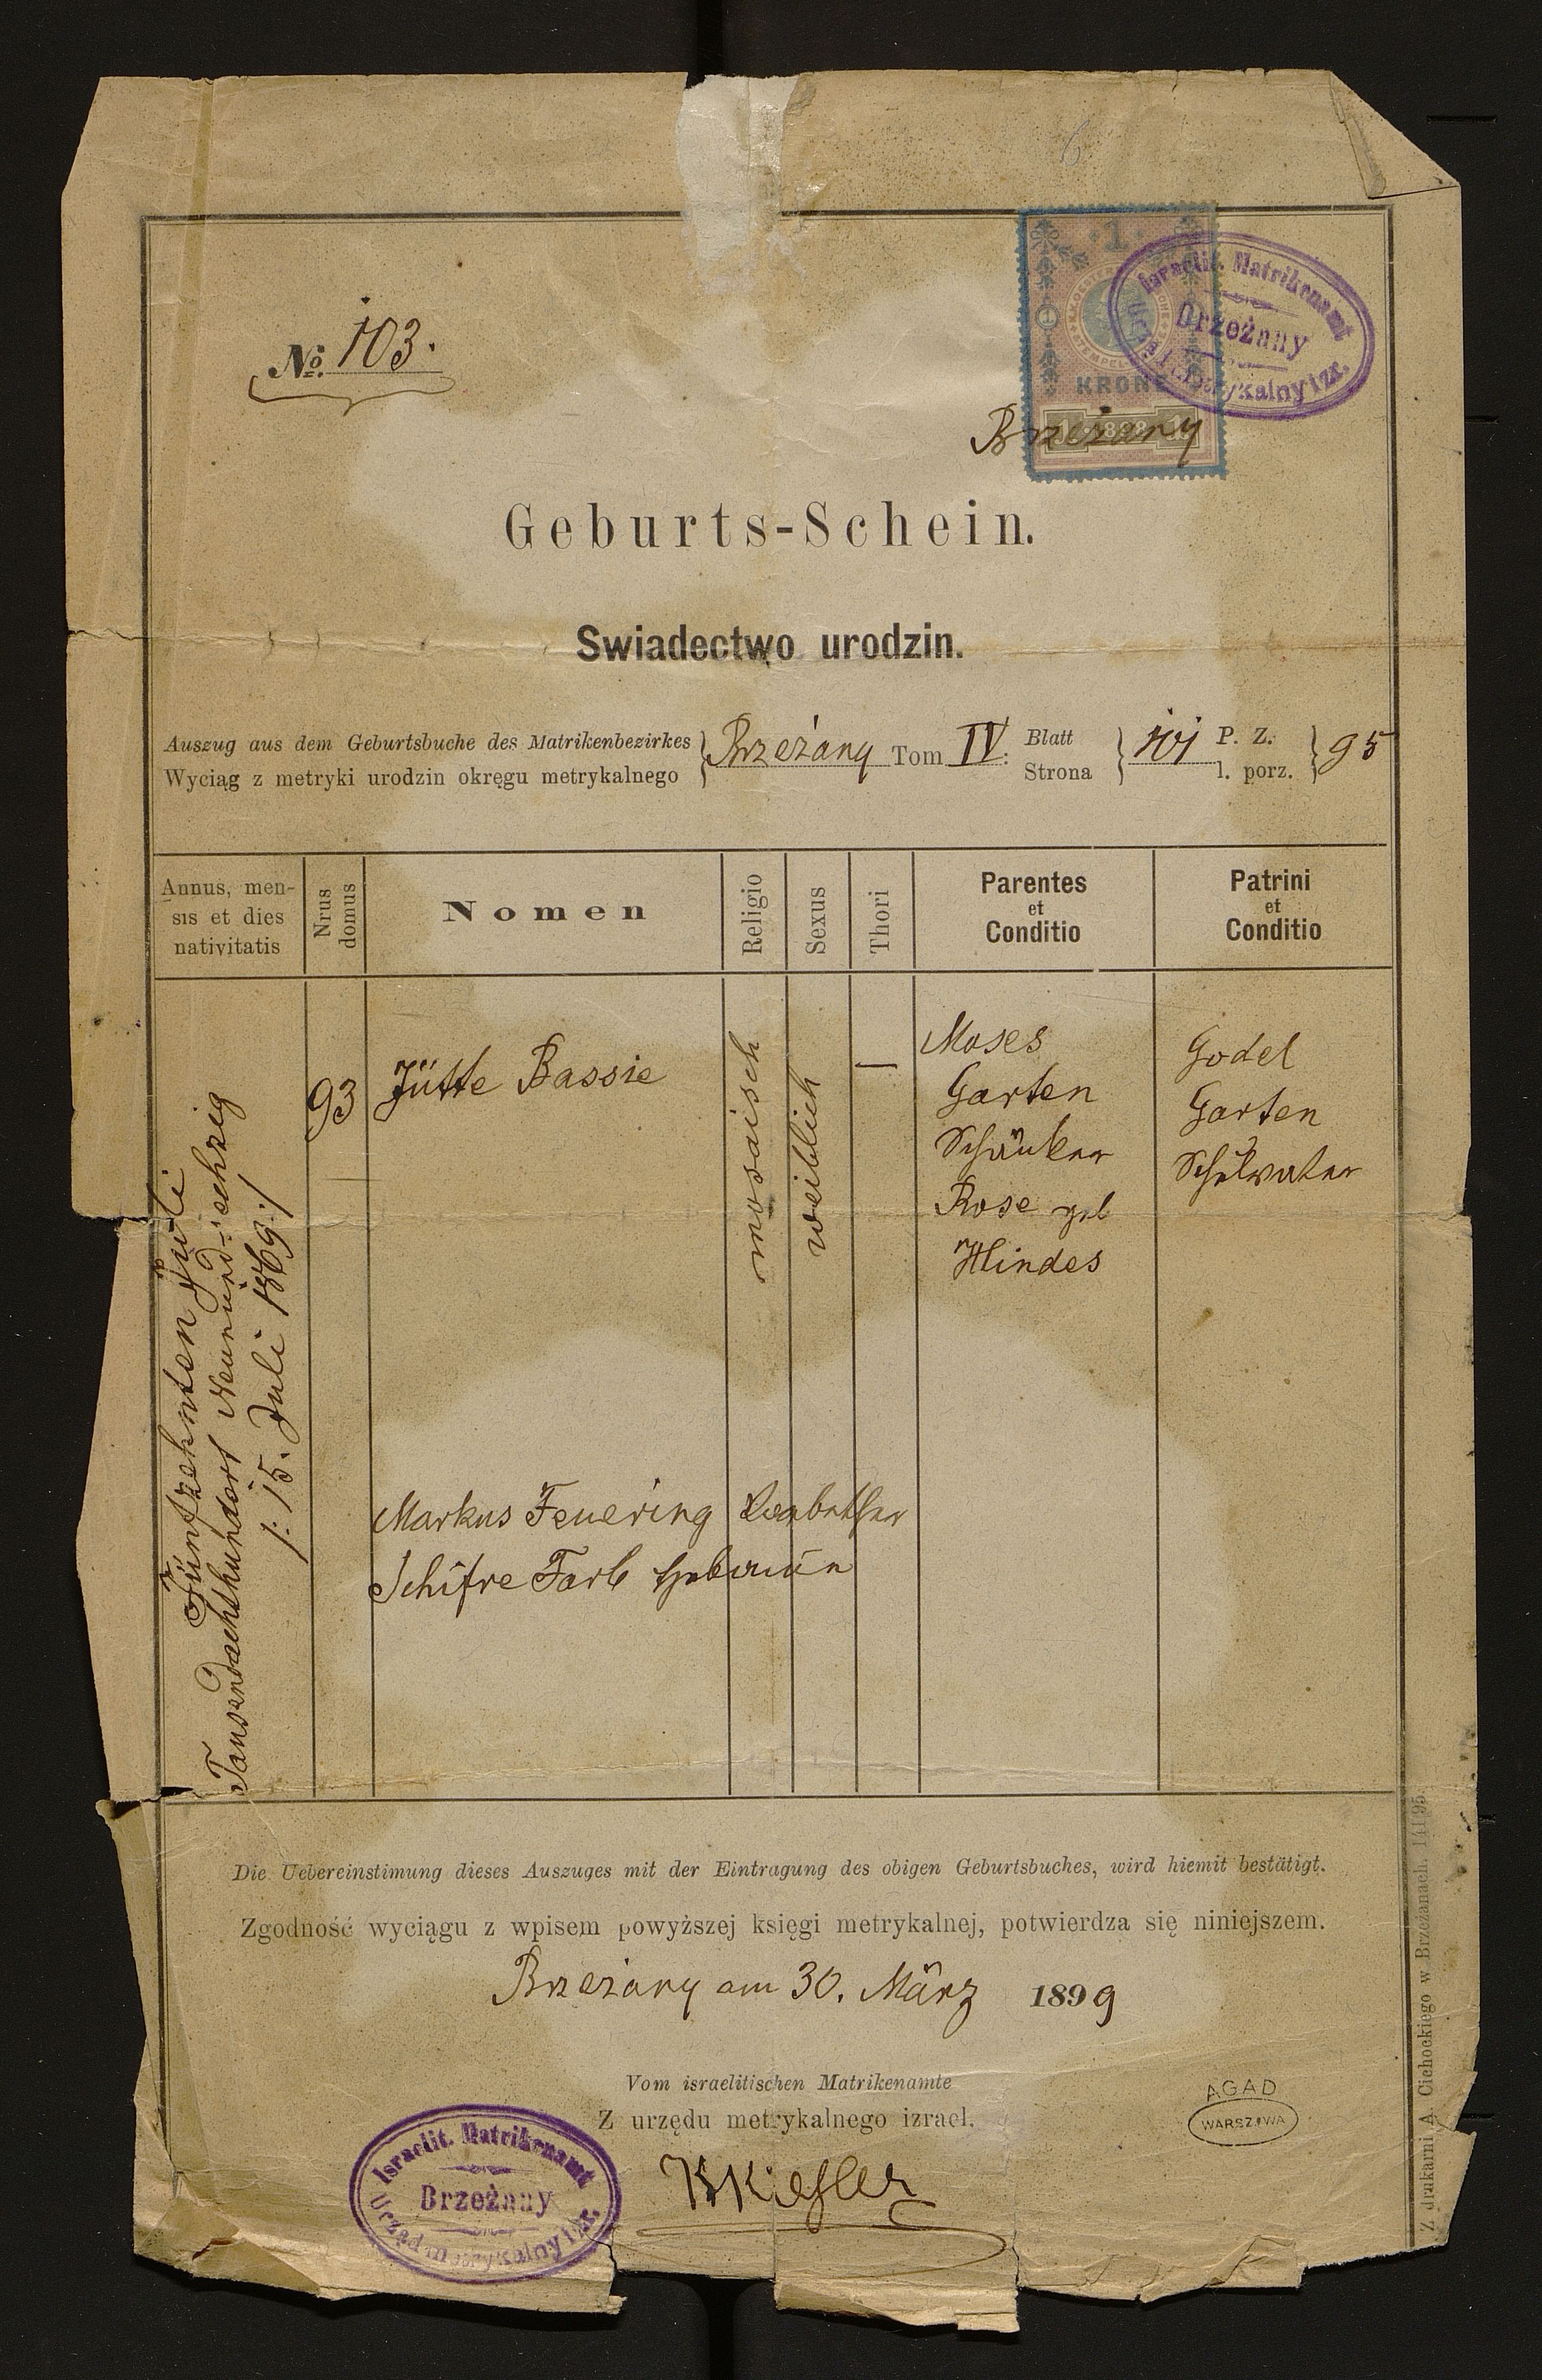 6
1
KRONE
1898
Israelit. Matrikenamt
Brzeżany
Urząd metrykalny izr.
№ 103.
Brzeżany
Geburts-Schein.
Swiadectwo urodzin.
Auszug aus dem Geburtsbuche des Matrikenbezirkes } Brzeżany Tom IV. Blatt } 101 P. Z. } 95
Wyciąg z metryki urodzin okręgu metrykalnego Strona l. porz.
Annus, men-
sis et dies
nativitatis
Nrus
domus
Nomen
Religio
Sexus
Thori
Parentes
et
Conditio
Patrini
et
Conditio
Fünfzehnten Juli
Tausendachthundert Neunund=sechzig
/: 15. Juli 1869 :/
93
Jütte Bassie
mosaisch
weiblich
—
Moses
Garten
Schänker
Rose geb
Hindes
Godel
Garten
Markus Feuering
Schifre Farb Hebamme
Die Uebereinstimung dieses Auszuges mit der Eintragung des obigen Geburtsbuches, wird hiemit bestätigt.
Zgodność wyciągu z wpisem powyższej księgi metrykalnej, potwierdza się niniejszem.
Brzeżany am 30. März 1899
Vom israelitischen Matrikenamte
Z urzędu metrykalnego izrael.
Israelit. Matrikenamt
Brzeżany
Urząd metrykalny izr.
AGAD
WARSZAWA
Z drukarni A. Cichockiego w Brzeżanach. 141 95.